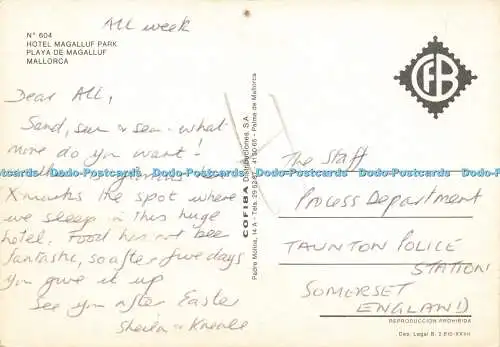 All week
N° 604
HOTEL MAGALLUF PARK
PLAYA DE MAGALLUF
MALLORCA
CFB
Dear ALL,
Sand, sun & sea - what
more do you want!
X marks the spot where
we sleep in this huge
hotel. Food has not bee
fantastic, so after five days
you give it up
See you after Easter
Sheila
COFIBA Distribuciones, S.A.
Padre Molina, 14 A - Tels. 29 - Palma de Mallorca
The Staff
Process Department
TAUNTON POLICE
STATION
SOMERSET
ENGLAND
REPRODUCCION PROHIBIDA
Dep. Legal B. 2.810-XXIII
Postcards Postcards Postcards Postcards Postcards